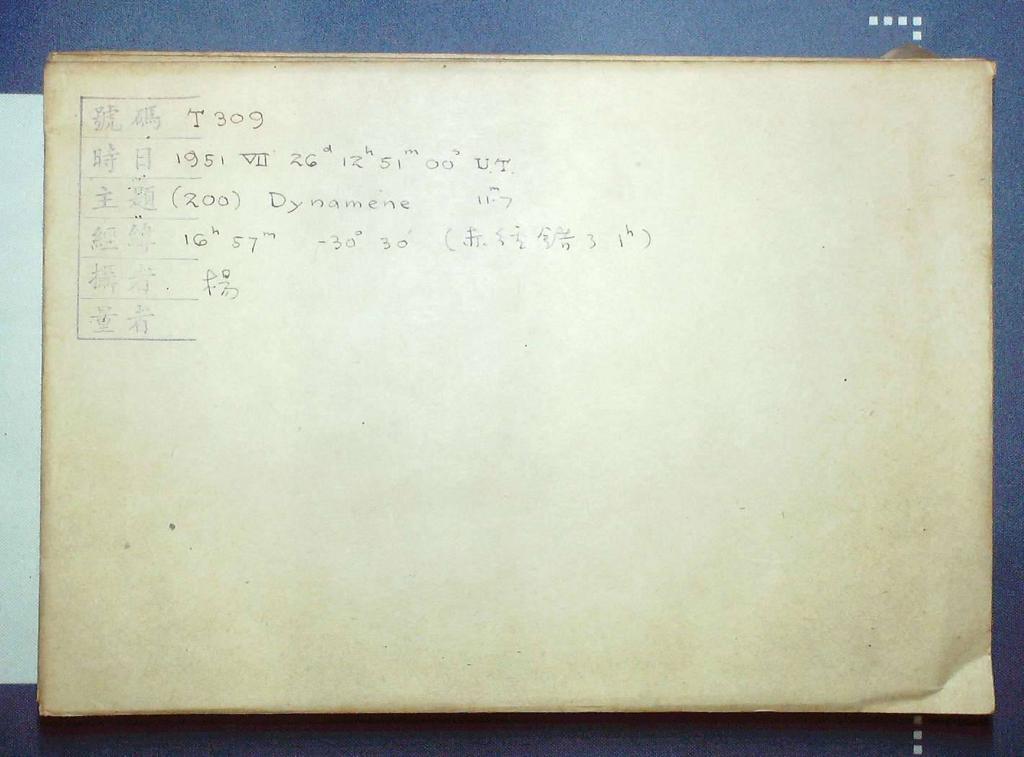 號碼 T 309
時日 1951 VII 26ᵈ 12ʰ 51ᵐ 00ˢ U.T.
主題 (200) Dynamene 11ᵐ.7
經緯 16ʰ 57ᵐ -30° 30′ (赤经錯了 1ʰ)
攝者 楊
量者